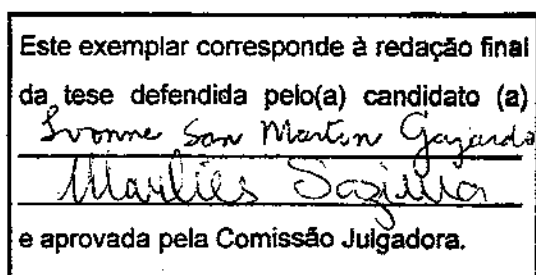 Este exemplar corresponde à redação final
da tese defendida pelo(a) candidato (a)
Ivonne San Martin Gajardo
Marlies Sazima
e aprovada pela Comissão Julgadora.